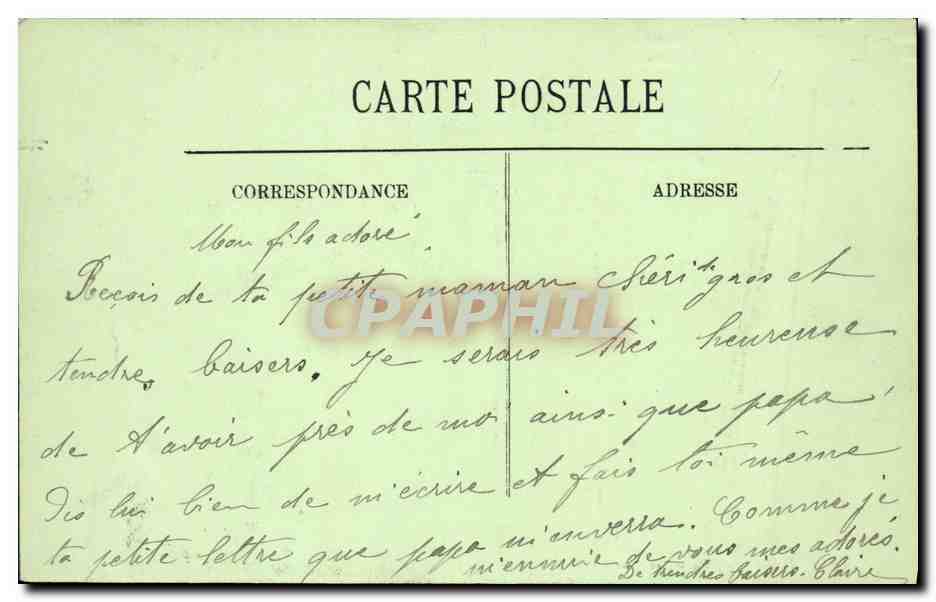 CARTE POSTALE
CORRESPONDANCE
ADRESSE
Mon fils adoré.
Reçois de ta petite maman chérie gros et
CPAPHIL
tendres baisers. Je serais très heureuse
de t'avoir près de moi ainsi que papa,
Dis lui bien de m'écrire et fais toi même
ta petite lettre que papa m'enverra. Comme je
m'ennuie de vous mes adorés.
De tendres baisers. Claire